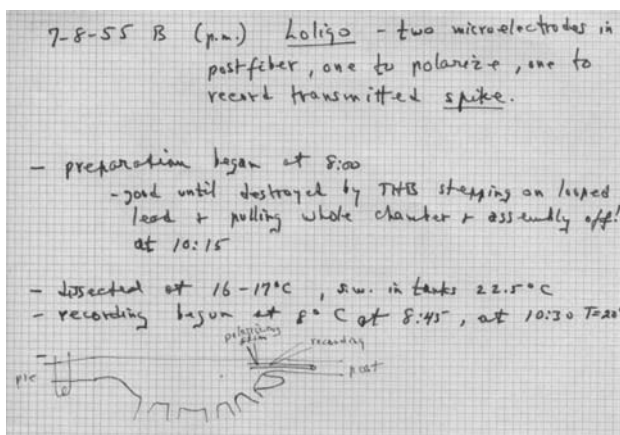 7-8-55 B (p.m.) Loligo - two microelectrodes in
postfiber, one to polarize, one to
record transmitted spike.
- preparation began at 8:00
- good until destroyed by THB stepping on looped
lead + pulling whole chamber + assembly off!
at 10:15
- dissected at 16-17°C, s.w. in tanks 22.5°C
- recording begun at 8°C at 8:45, at 10:30 T=20°
polarizing
recording
pre
post